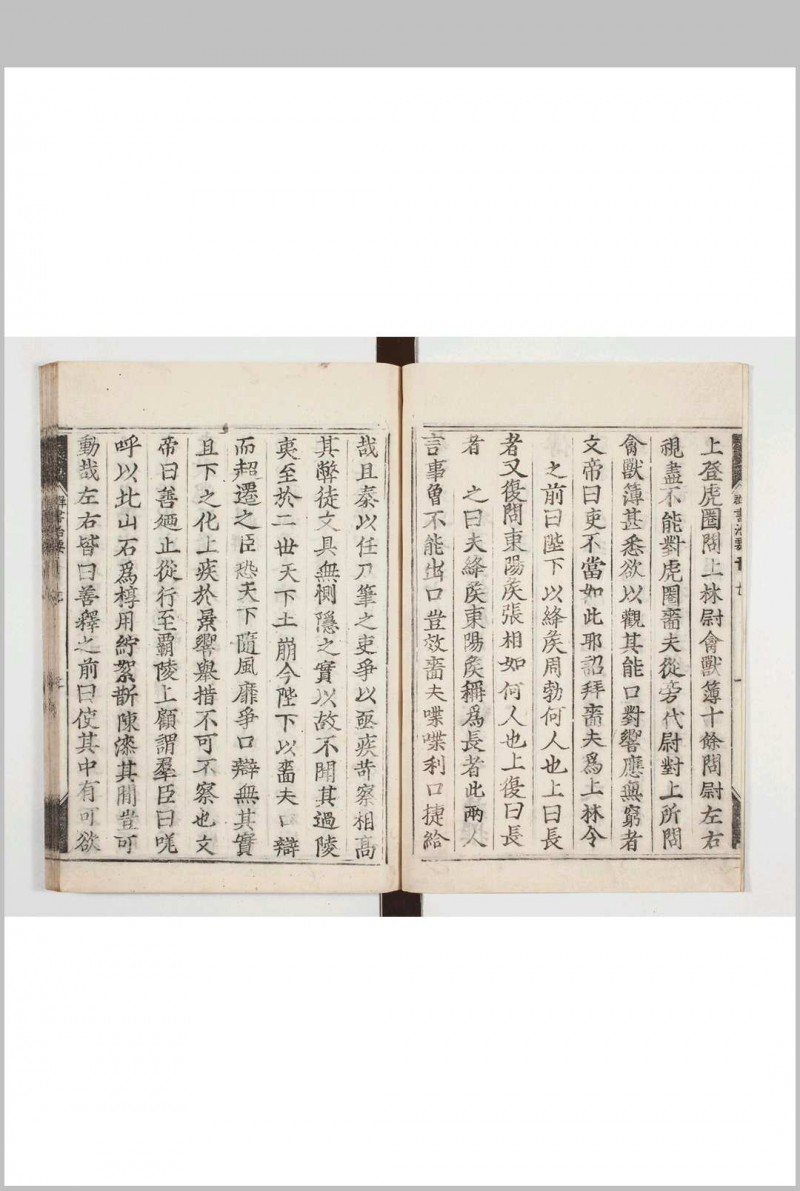 上登虎圈問上林尉禽獸簿十餘問尉左右
視盡不能對虎圈嗇夫從旁代尉對上所問
禽獸簿甚悉欲以觀其能口對響應無窮者
文帝曰吏不當如此耶詔拜嗇夫爲上林令
之前曰陛下以絳侯周勃何人也上曰長
者又復問東陽侯張相如何人也上復曰長
者 之曰夫絳侯東陽侯稱爲長者此兩人
言事曾不能出口豈效嗇夫喋喋利口捷給
哉且秦以任刀筆之吏爭以亟疾苛察相高
其弊徒文具無惻隱之實以故不聞其過陵
夷至於二世天下土崩今陛下以嗇夫口辯
而超遷之臣恐天下隨風靡爭口辯無其實
且下之化上疾於景響舉措不可不察也文
帝曰善廼止從行至霸陵上顧謂羣臣曰嗟
呼以北山石爲椁用紵絮斮陳漆其閒豈可
動哉左右皆曰善釋之前曰使其中有可欲
群書治要